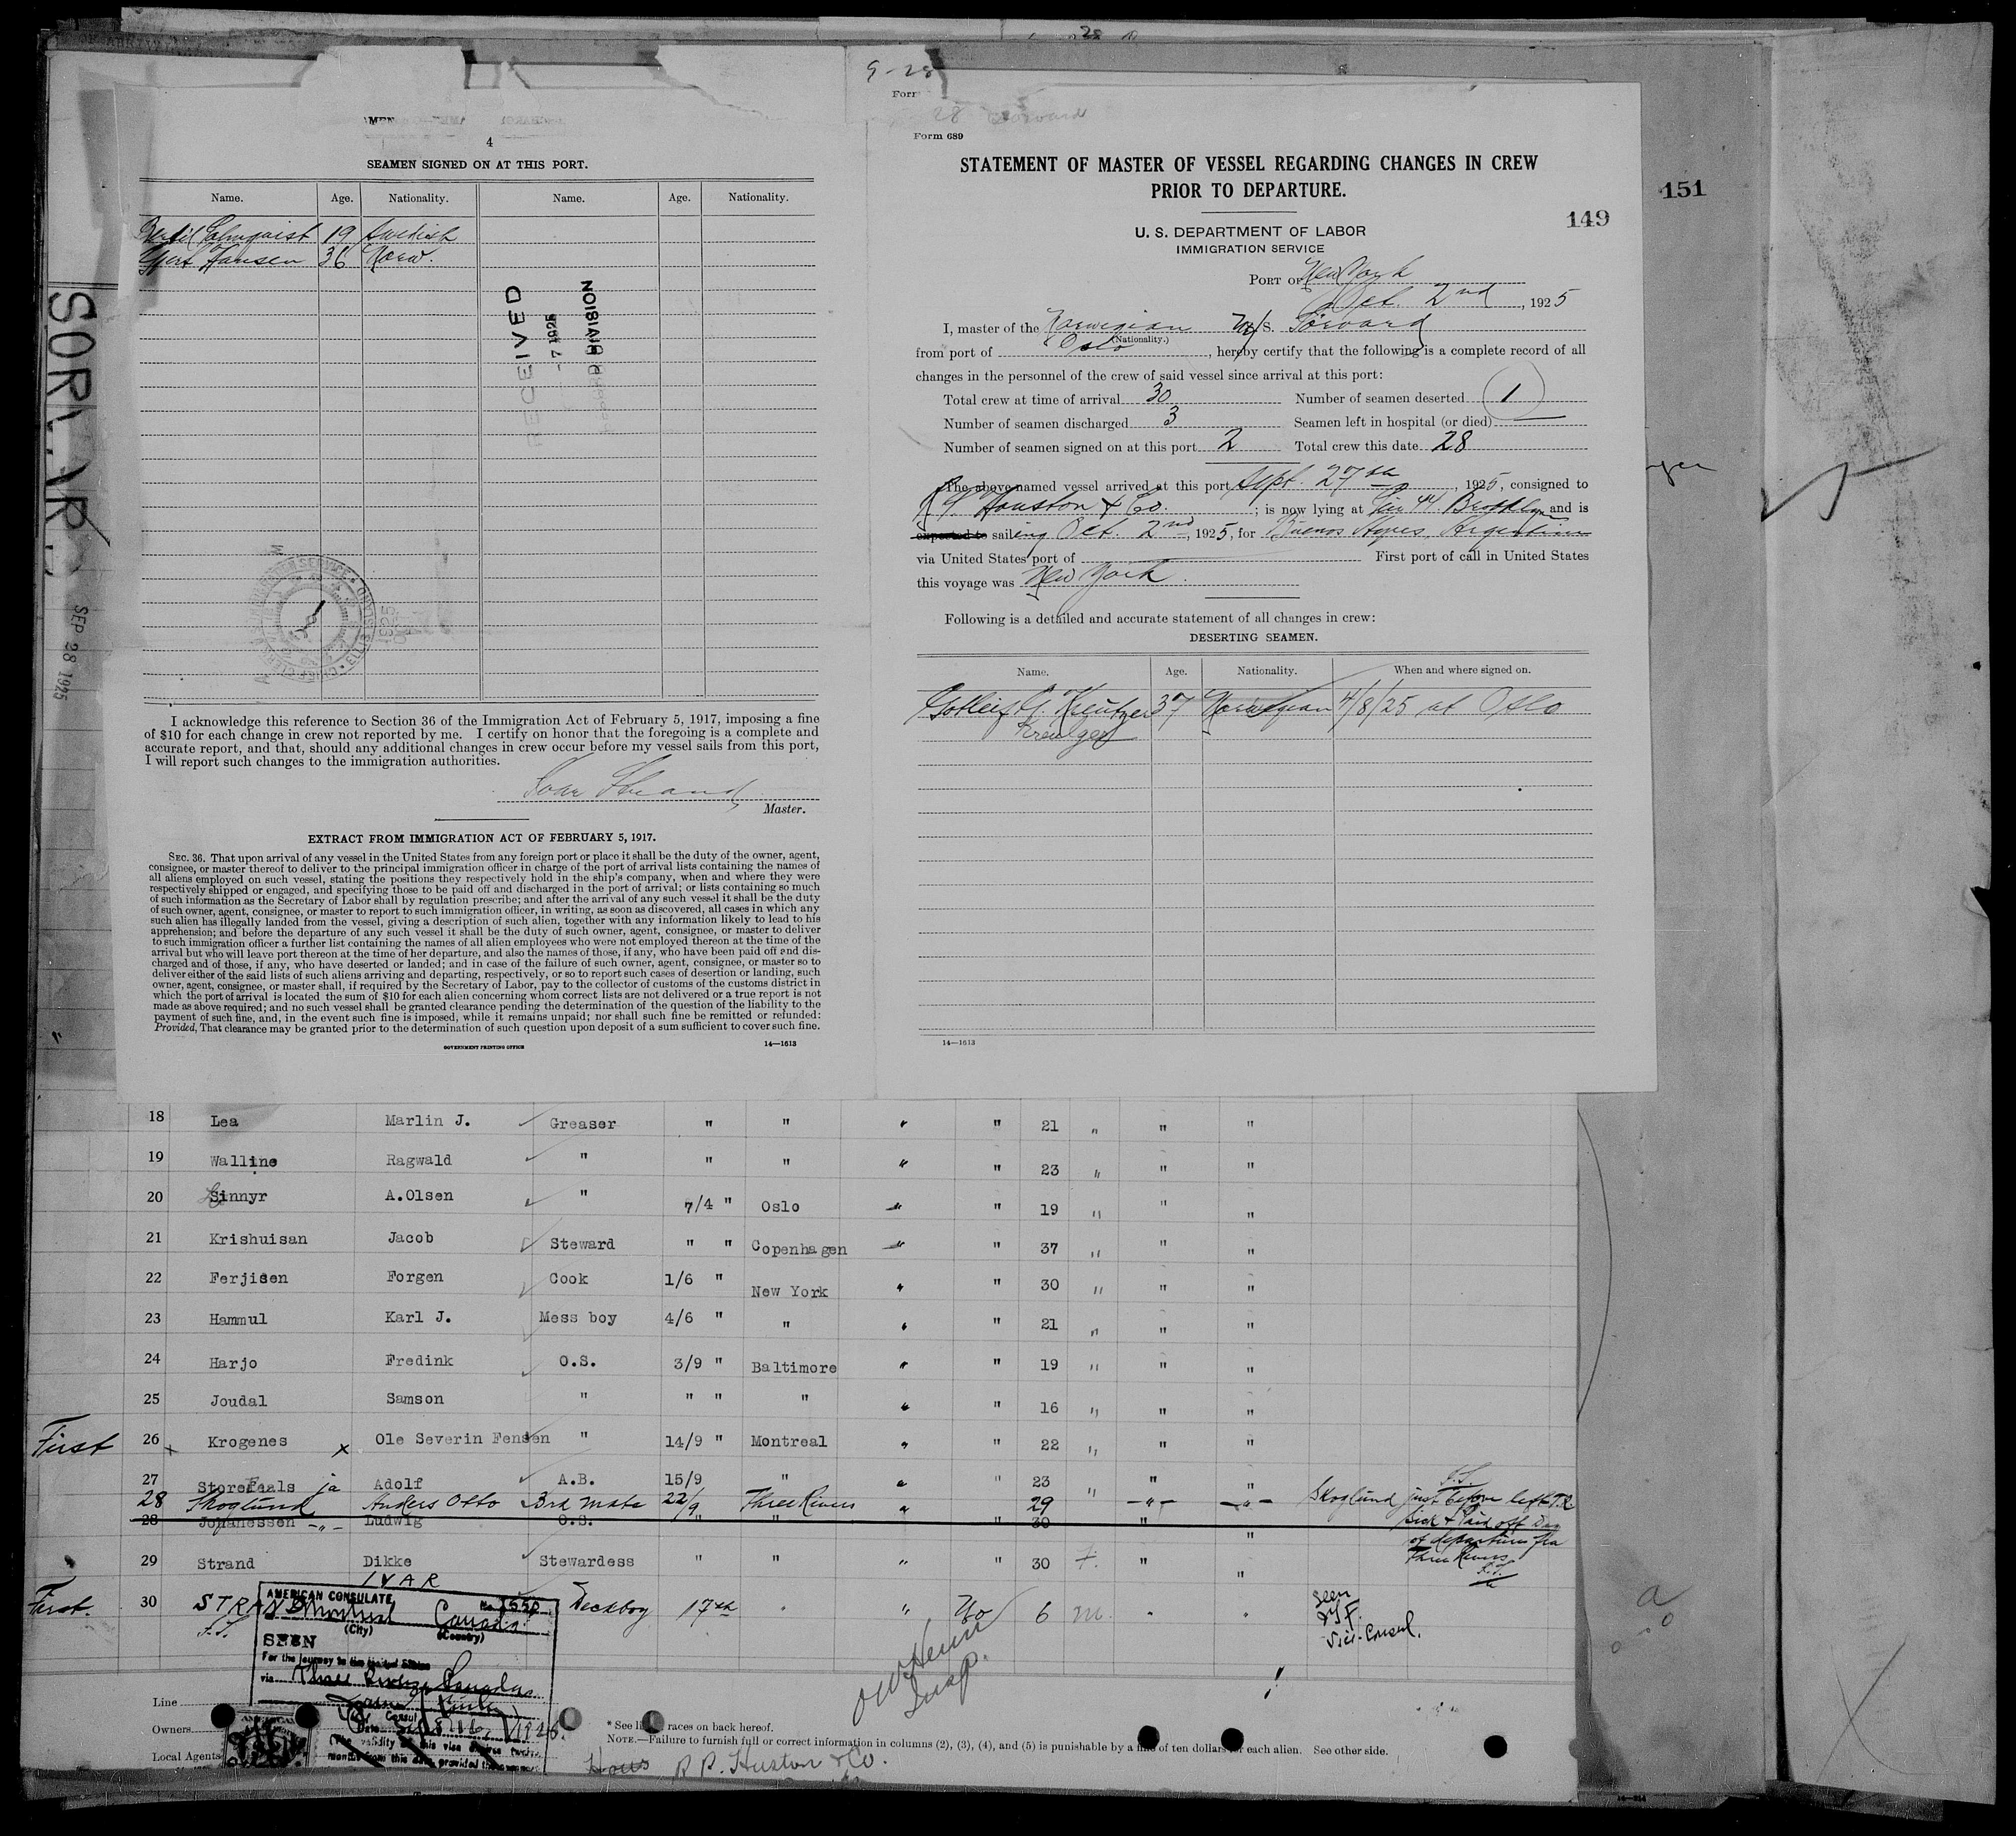 4
SEAMEN SIGNED ON AT THIS PORT.
Name. Age. Nationality. Name. Age. Nationality.
19 Swedish
Hansen 36 Norw.
RECEIVED
- 7 1925
DIVISION
I acknowledge this reference to Section 36 of the Immigration Act of February 5, 1917, imposing a fine
of $10 for each change in crew not reported by me. I certify on honor that the foregoing is a complete and
accurate report, and that, should any additional changes in crew occur before my vessel sails from this port,
I will report such changes to the immigration authorities.
Ivar Strand
Master.
EXTRACT FROM IMMIGRATION ACT OF FEBRUARY 5, 1917.
SEC. 36. That upon arrival of any vessel in the United States from any foreign port or place it shall be the duty of the owner, agent,
consignee, or master thereof to deliver to the principal immigration officer in charge of the port of arrival lists containing the names of
all aliens employed on such vessel, stating the positions they respectively hold in the ship's company, when and where they were
respectively shipped or engaged, and specifying those to be paid off and discharged in the port of arrival; or lists containing so much
of such information as the Secretary of Labor shall by regulation prescribe; and after the arrival of any such vessel it shall be the duty
of such owner, agent, consignee, or master to report to such immigration officer, in writing, as soon as discovered, all cases in which any
such alien has illegally landed from the vessel, giving a description of such alien, together with any information likely to lead to his
apprehension; and before the departure of any such vessel it shall be the duty of such owner, agent, consignee, or master to deliver
to such immigration officer a further list containing the names of all alien employees who were not employed thereon at the time of the
arrival but who will leave port thereon at the time of her departure, and also the names of those, if any, who have been paid off and dis-
charged and of those, if any, who have deserted or landed; and in case of the failure of such owner, agent, consignee, or master so to
deliver either of the said lists of such aliens arriving and departing, respectively, or so to report such cases of desertion or landing, such
owner, agent, consignee, or master shall, if required by the Secretary of Labor, pay to the collector of customs of the customs district in
which the port of arrival is located the sum of $10 for each alien concerning whom correct lists are not delivered or a true report is not
made as above required; and no such vessel shall be granted clearance pending the determination of the question of the liability to the
payment of such fine, and, in the event such fine is imposed, while it remains unpaid; nor shall such fine be remitted or refunded:
Provided, That clearance may be granted prior to the determination of such question upon deposit of a sum sufficient to cover such fine.
GOVERNMENT PRINTING OFFICE 14—1613
SEP 28 1925
Form 689
STATEMENT OF MASTER OF VESSEL REGARDING CHANGES IN CREW
PRIOR TO DEPARTURE.
149
151
U. S. DEPARTMENT OF LABOR
IMMIGRATION SERVICE
PORT OF New York
Oct. 2nd, 1925
I, master of the Norwegian M/S.
(Nationality.)
from port of Oslo, hereby certify that the following is a complete record of all
changes in the personnel of the crew of said vessel since arrival at this port:
Total crew at time of arrival 30 Number of seamen deserted 1
Number of seamen discharged 3 Seamen left in hospital (or died) —
Number of seamen signed on at this port 2 Total crew this date 28
The above-named vessel arrived at this port Sept. 27th, 1925, consigned to
Houston & Co. ; is now lying at Pier 44 Brooklyn and is
expected to sailing Oct. 2nd, 1925, for Buenos Ayres, Argentine
via United States port of First port of call in United States
this voyage was New York.
Following is a detailed and accurate statement of all changes in crew:
DESERTING SEAMEN.
Name. Age. Nationality. When and where signed on.
Kreutzer 37 Norwegian 4/8/25 at Oslo
14—1613
18 Lea Marlin J. Greaser " " " " 21 " " "
19 Walline Ragwald " " " " " 23 " " "
20 Sinnyr A.Olsen " 7/4 " Oslo " " 19 " " "
21 Krishuisan Jacob Steward " " Copenhagen " " 37 " " "
22 Ferjisen Forgen Cook 1/6 " New York " " 30 " " "
23 Hammul Karl J. Mess boy 4/6 " " " " 21 " " "
24 Harjo Fredink O.S. 3/9 " Baltimore " " 19 " " "
25 Joudal Samson " " " " " " 16 " " "
First 26 x Krogenes x Ole Severin Fensen " 14/9 " Montreal " " 22 " " "
27 ja Adolf A.B. 15/9 " " " 23 " " "
28 Skoglund Anders Otto 3rd mate 22/9 Three Rivers " 29 -"- -"- Skoglund just before left T.R.
28 Johanessen -"- Ludwig O.S. " " 30 " " Sick & Paid off Day
of departure fra
Three Rivers
29 Strand Dikke Stewardess " " " " 30 F. " "
First. 30 STRAND IVAR Deckboy 17th " " No 6 m. " "
Seen
Vice-Consul.
AMERICAN CONSULATE
Montreal Canada
(City) (Country)
SEEN
For the journey to the United States
via Three Rivers Canada
Consul
Insp.
Line
Owners
Local Agents
* See list of races on back hereof.
NOTE.—Failure to furnish full or correct information in columns (2), (3), (4), and (5) is punishable by a fine of ten dollars for each alien. See other side.
R. P. Huston & Co.